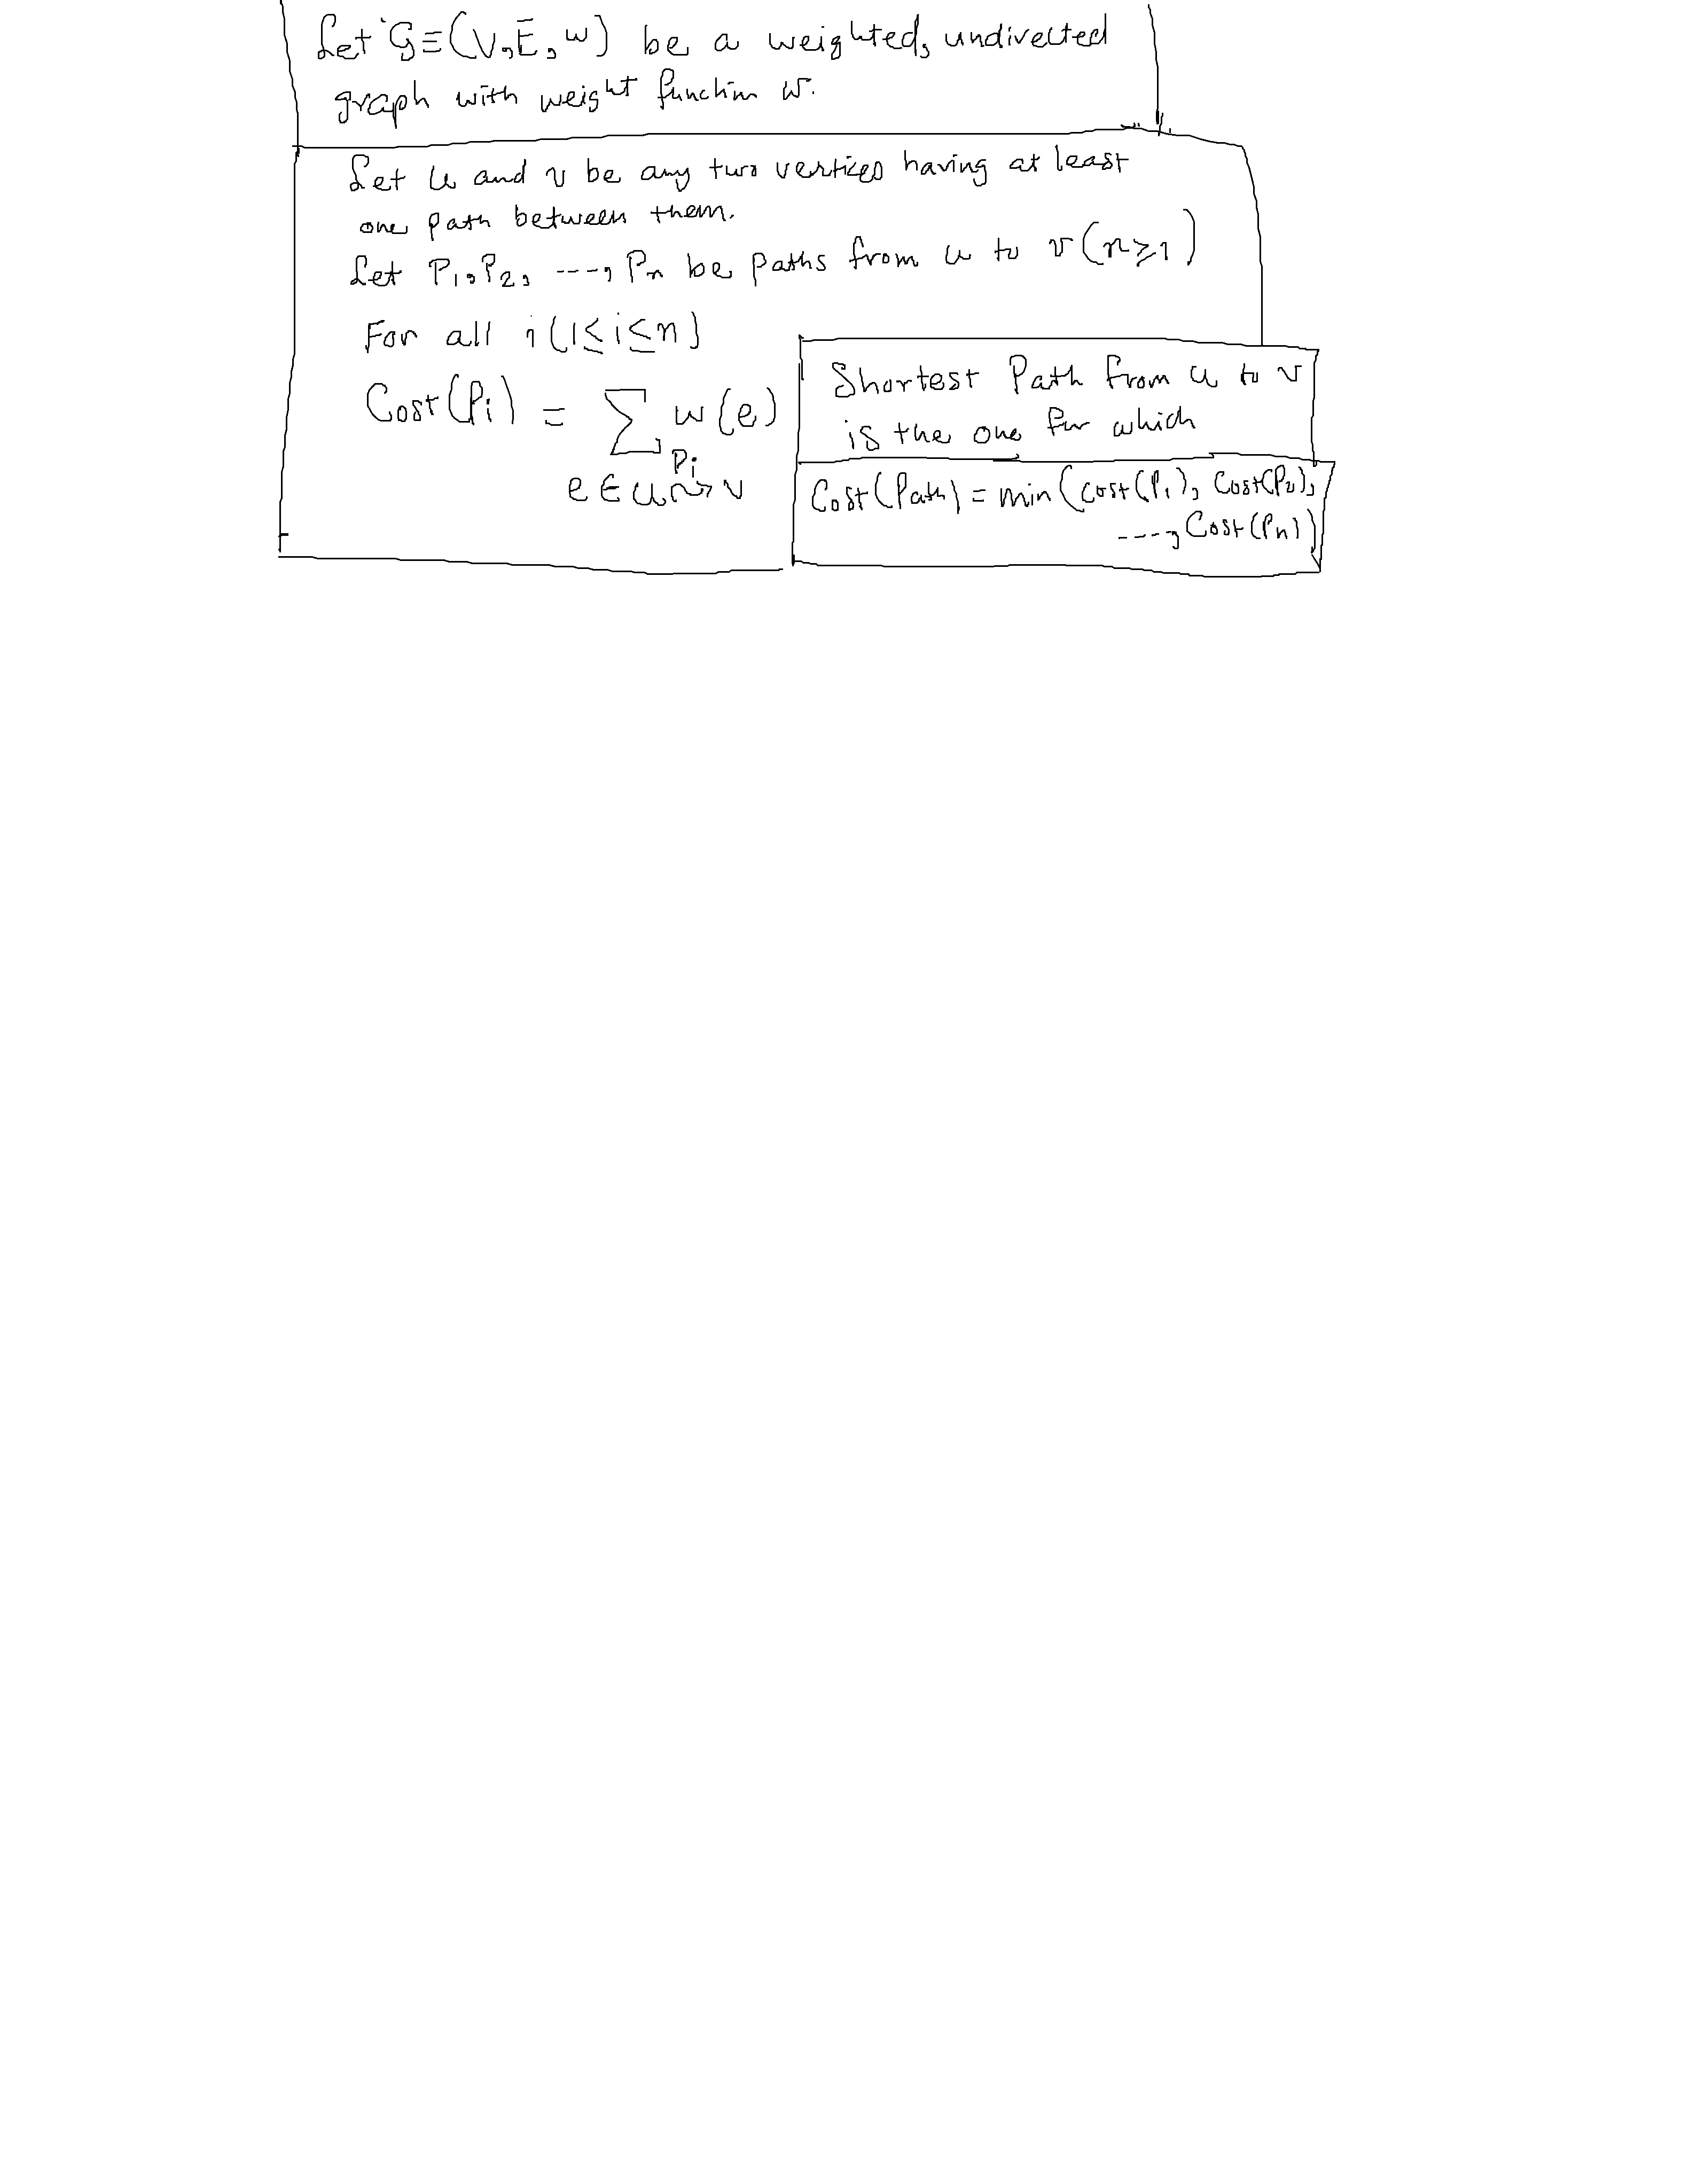 Let G≡(V,E,w) be a weighted, undirected
graph with weight function w.
Let u and v be any two vertices having at least
one path between them.
Let P₁,P₂, ----, Pₙ be paths from u to v (n≥1)
For all i (1≤i≤n)
Cost(Pᵢ) = ∑ w(e)
Pᵢ
e ∈ u⇝v
Shortest Path from u to v
is the one for which
Cost(Path) = min(cost(P₁), Cost(P₂),
----, Cost(Pₙ))